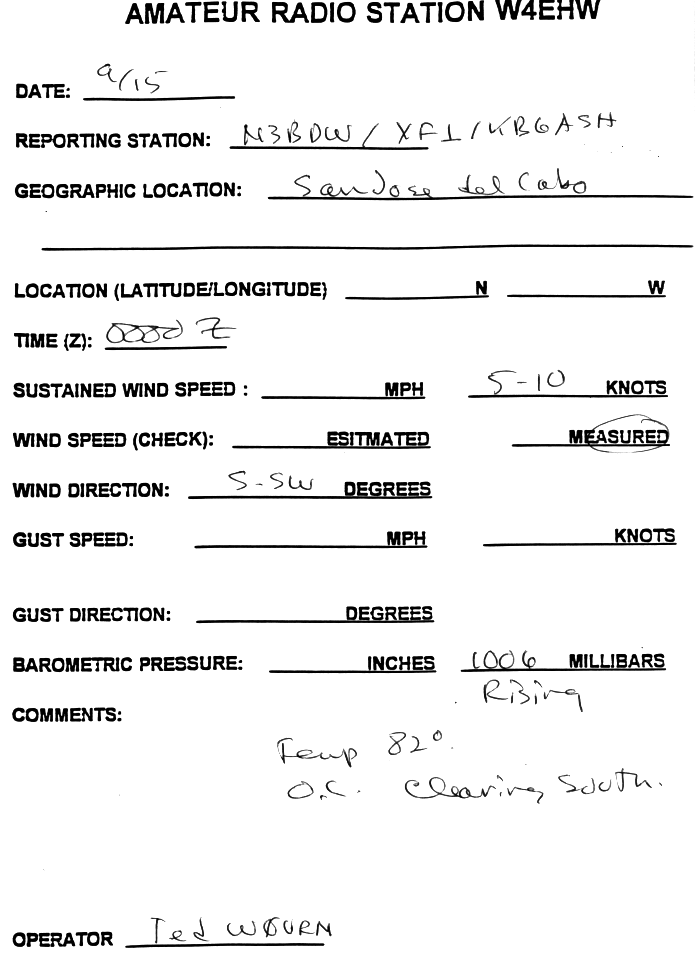 AMATEUR RADIO STATION W4EHW
DATE: 9/15
REPORTING STATION: N3BDW / XF1 / KB6ASH
GEOGRAPHIC LOCATION: San Jose del Cabo
LOCATION (LATITUDE/LONGITUDE) N W
TIME (Z): 0000 Z
SUSTAINED WIND SPEED : MPH 5-10 KNOTS
WIND SPEED (CHECK): ESITMATED MEASURED
WIND DIRECTION: S-SW DEGREES
GUST SPEED: MPH KNOTS
GUST DIRECTION: DEGREES
BAROMETRIC PRESSURE: INCHES 1006 MILLIBARS
Rising
COMMENTS:
Temp 82°.
O.C. Clearing South.
OPERATOR Ted WØURN